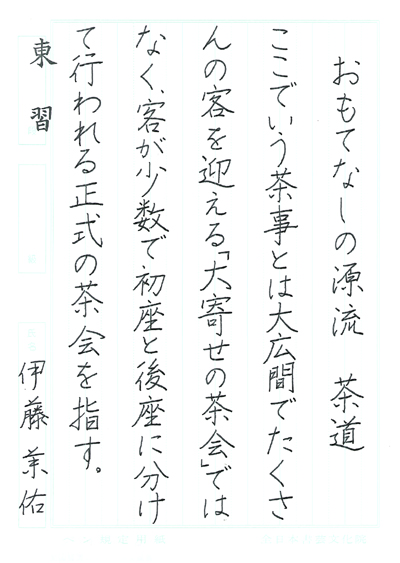 おもてなしの源流　茶道
ここでいう茶事とは大広間でたくさ
んの客を迎える「大寄せの茶会」では
なく、客が少数で初座と後座に分け
て行われる正式の茶会を指す。
東習
伊藤 佑